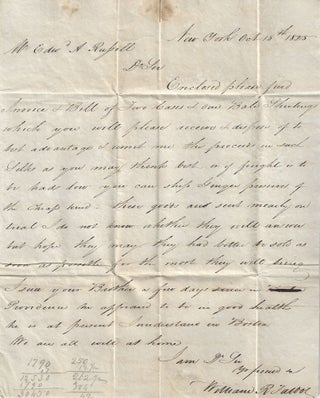 New York Oct 15th 1825
Mr Edwd A Russell
Dr Sir
Enclosed please find
Invoice & Bill of Two Cases & one Bale Shirtings
which you will please receive & dispose of to
best advantage & remit me the proceeds in such
Silks as you may think best or if freight is to
be had low you can ship Ginger provision of
the cheap kind - these goods are sent mearly on
trial I do not know whether they will answer
but hope they may they had better be sold as
soon as possible for the most they will bring
I saw your Brother a few days since in
Providence he appeared to be in good health
he is at present in Boston
We are all well at home
I am Dr Sir
William R Talbot
1790